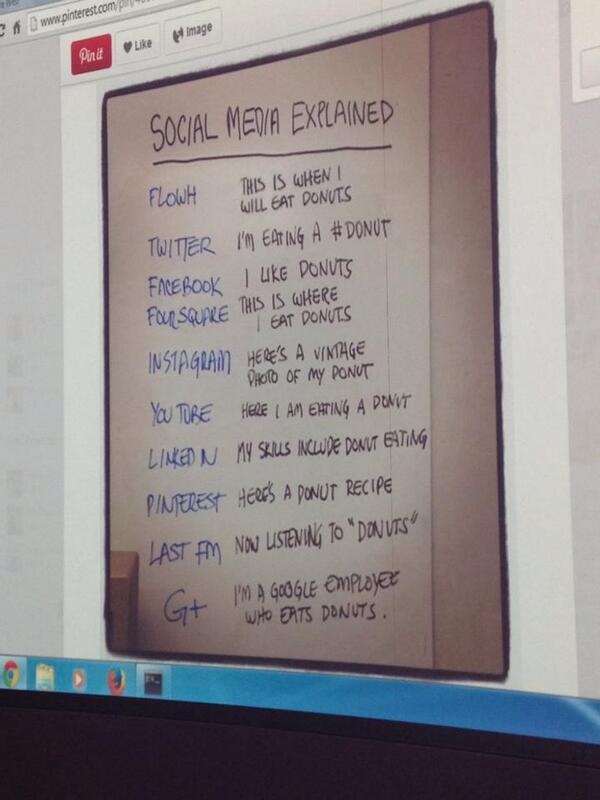 www.pinterest.com/pin/4
Pin it
Like
Image
SOCIAL MEDIA EXPLAINED
FLOWH THIS IS WHEN I
WILL EAT DONUTS
TWITTER I'M EATING A #DONUT
FACEBOOK I LIKE DONUTS
FOURSQUARE THIS IS WHERE
I EAT DONUTS
INSTAGRAM HERE'S A VINTAGE
PHOTO OF MY DONUT
YOU TUBE HERE I AM EATING A DONUT
LINKED IN MY SKILLS INCLUDE DONUT EATING
PINTEREST HERE'S A DONUT RECIPE
LAST FM NOW LISTENING TO "DONUTS"
G+ I'M A GOOGLE EMPLOYEE
WHO EATS DONUTS.